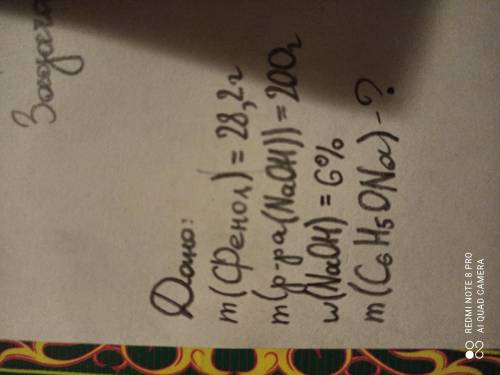 Задача
Дано:
m(Фенол) = 28,2 г
m(р-ра(NaOH)) = 200г
w(NaOH) = 6%
m(C6H5ONa) - ?
REDMI NOTE 8 PRO
AI QUAD CAMERA